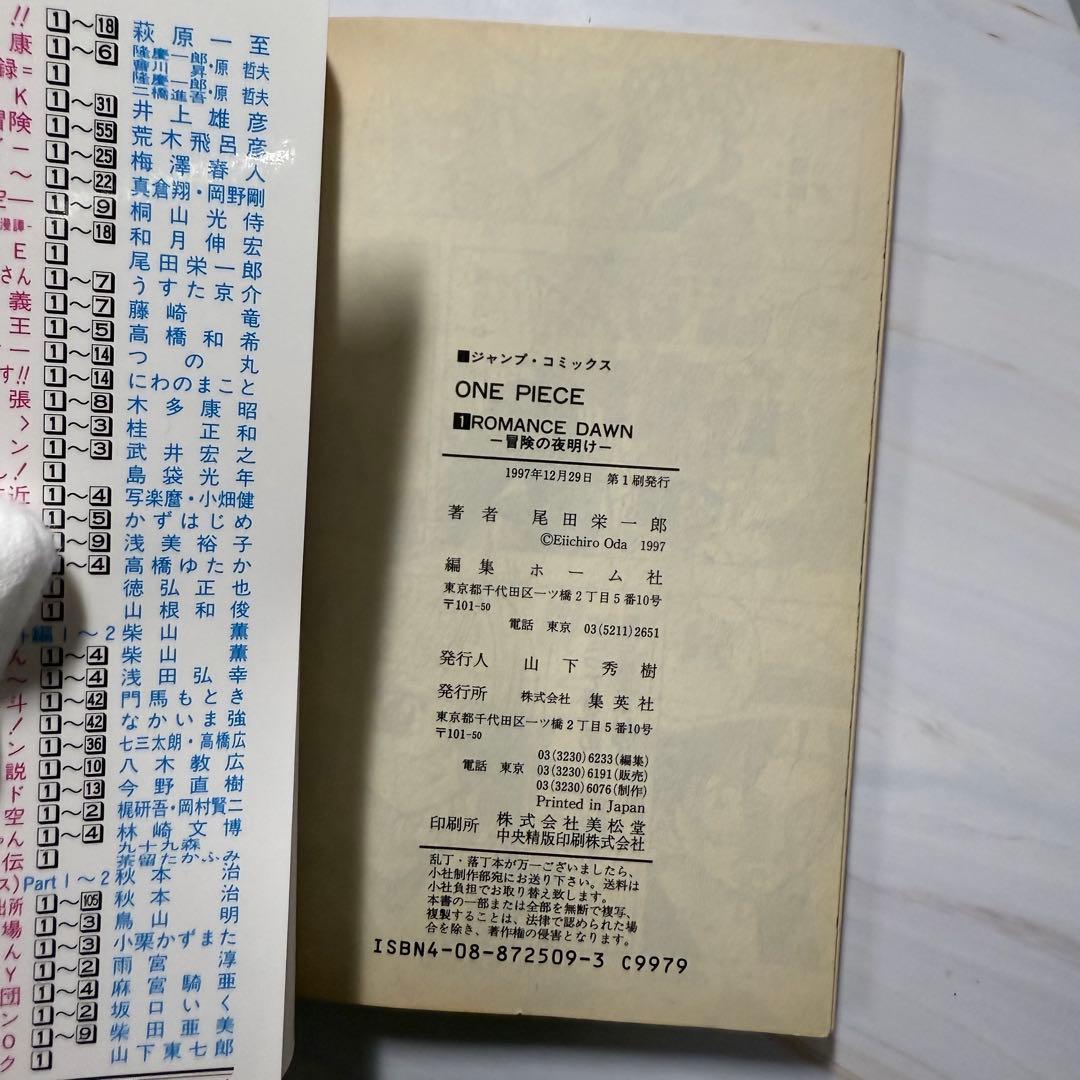 !! 1～18 萩原一至
康 1～6 隆慶一郎・原 哲夫
録= 1 隆慶一郎・原 哲夫
K 1～31 井上雄彦
冒険 1～55 荒木飛呂彦
1～25 梅澤春人
～ 1～22 真倉翔・岡野剛
1～9 桐山光侍
漫譚- 1～18 和月伸宏
E 1 尾田栄一郎
さん 1～7 うすた京介
義 1～7 藤崎竜
王 1～5 高橋和希
ー 1～14 つの丸
す!! 1～14 にわのまこと
張 1～8 木多康昭
> 1～3 桂正和
ン! 1～3 武井宏之
1 島袋光年
近 1～4 写楽麿・小畑健
1～5 かずはじめ
～9 浅美裕子
～4 高橋ゆたか
徳弘正也
1 山根和俊
編1～2 柴山薫
ん 1～4 柴山薫
～ 1～4 浅田弘幸
斗 1～42 門馬もとき
! 1～42 なかいま強
ン 1～36 七三太朗・高橋広
説 1～10 八木教広
ド 1～13 今野直樹
空 1～2 梶研吾・岡村賢二
ゃん 1～4 林崎文博
伝 1 九十九森
茶留たかふみ
ス) Part 1～2 秋本治
出所 1～105 秋本治
場 1～3 鳥山明
ん 1～3 小栗かずまた
Y 1～2 雨宮淳
団 1～4 麻宮騎亜
ン 1～2 坂口いく
O 1～9 柴田亜美
ク 1 山下東七郎
■ジャンプ・コミックス
ONE PIECE
1 ROMANCE DAWN
―冒険の夜明け―
1997年12月29日 第1刷発行
著者 尾田栄一郎
©Eiichiro Oda 1997
編集 ホーム社
東京都千代田区一ツ橋2丁目5番10号
〒101-50
電話 東京 03(5211)2651
発行人 山下秀樹
発行所 株式会社 集英社
東京都千代田区一ツ橋2丁目5番10号
〒101-50
03(3230)6233(編集)
電話 東京 03(3230)6191(販売)
03(3230)6076(制作)
Printed in Japan
印刷所 株式会社美松堂
中央精版印刷株式会社
乱丁・落丁本が万一ございましたら、
小社制作部宛にお送り下さい。送料は
小社負担でお取り替え致します。
本書の一部または全部を無断で複写、
複製することは、法律で認められた場
合を除き、著作権の侵害となります。
ISBN4-08-872509-3 C9979